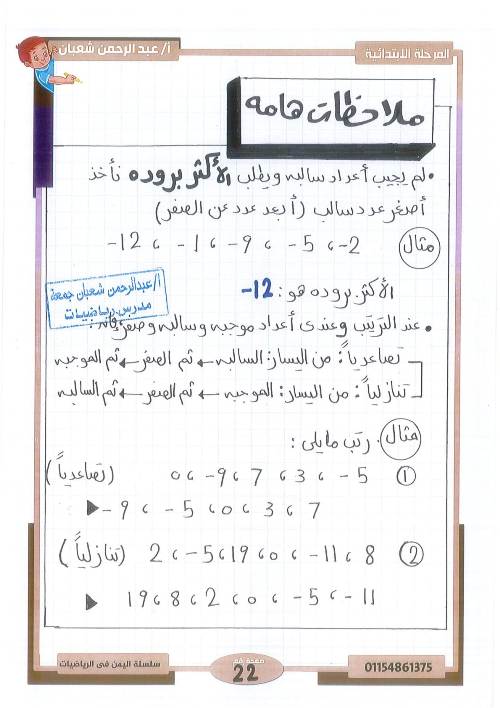 المرحلة الابتدائية
أ/ عبد الرحمن شعبان
ملاحظات هامه
• لم يجيب أعداد سالبه ويطلب الأكثر بروده نأخذ
أصغر عدد سالب (أبعد عدد عن الصفر)
مثال -2 ، -5 ، -9 ، -1 ، -12
الأكثر بروده هو: -12
أ/عبدالرحمن شعبان جمعة
مدرس رياضيات
• عند الترتيب وعندى أعداد موجبه وسالبه وصفر فإنه:
تصاعدياً: من اليسار: السالبه ← ثم الصفر ← ثم الموجبه
تنازلياً: من اليسار: الموجبه ← ثم الصفر ← ثم السالبه
مثال رتب مايلى:
① 0 ، -9 ، 7 ، 3 ، -5 (تصاعدياً)
▶ -9 ، -5 ، 0 ، 3 ، 7
② 2 ، -5 ، 19 ، 0 ، -11 ، 8 (تنازلياً)
▶ 19 ، 8 ، 2 ، 0 ، -5 ، -11
01154861375
صفحة رقم
22
سلسلة اليمن فى الرياضيات